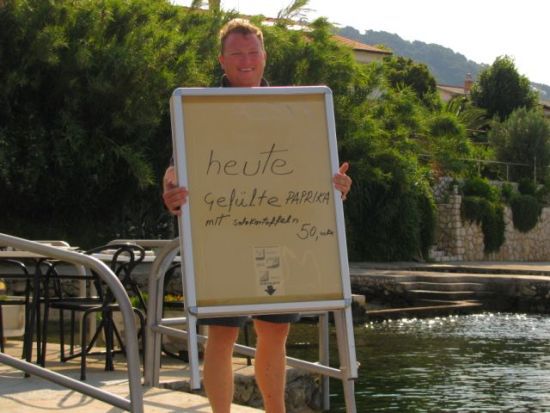 heute
Gefülte PAPRIKA
mit Salzkartoffeln
50,